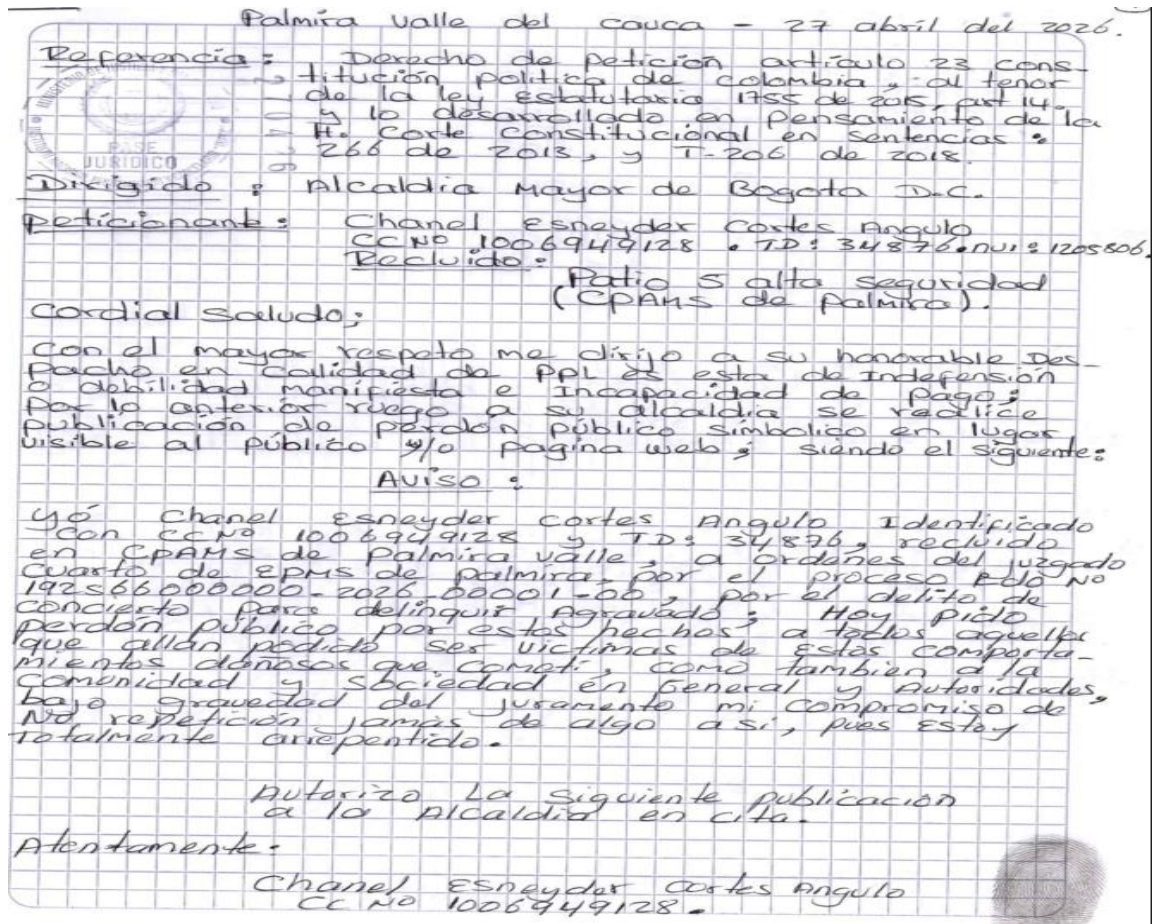 Palmira Valle del Cauca - 27 abril del 2026.
Referencia: Derecho de petición artículo 23 cons-
titución politica de colombia, al tenor
de la ley Estatutaria 1755 de 2015, art 14.
y lo desarrollado en pensamiento de la
H. Corte Constitucional en sentencias:
266 de 2013, y T-206 de 2018.
PASE
JURIDICO
Dirigido: Alcaldia Mayor de Bogota D.C.
Peticionante: Chanel Esneyder Cortes Angulo
CC Nº 1006949128. TD: 34876. nui: 1205806.
Recluido:
Patio 5 alta seguridad
(CPAMS de palmira).
Cordial saludo;
Con el mayor respeto me dirijo a su honorable Des-
pacho en calidad de PPL es esta de Indefensión
o debilidad manifiesta e Incapacidad de pago;
Por lo anterior ruego a su alcaldia se realice
publicación de perdón público simbolico en lugar
visible al público y/o pagina web; siendo el siguiente:
Aviso:
Yó Chanel Esneyder Cortes Angulo Identificado
con CC Nº 1006949128 y TD: 34876, recluido
en CPAMS de palmira Valle, a ordenes del juzgado
cuarto de EPMS de palmira, por el proceso Rdo Nº
192566000000-2026-00001-00, por el delito de
concierto para delinquir Agravado; Hoy pido
perdón público por estos hechos, a todos aquellos
que allán podido ser victimas de estos comporta-
mientos dañosos que cometí, como tambien a la
comunidad y sociedad en General y Autoridades,
bajo gravedad del juramento mi compromiso de
No repetición jamás de algo a sí, pues Estoy
totalmente arrepentido.
Autorizo La siguiente publicación
a la Alcaldia en cita.
Atentamente:
Chanel Esneyder Cortes Angulo
CC Nº 1006949128.